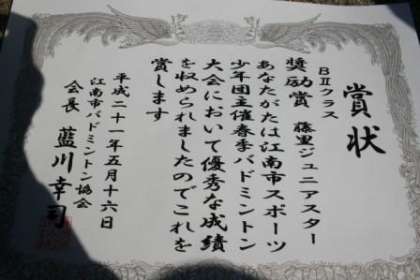 賞状
BⅡクラス
奨励賞 藤里ジュニアスター
あなたがたは江南市スポーツ
少年団主催春季バドミントン
大会において優秀な成績
を収められましたのでこれを
賞します
平成二十一年五月十六日
江南市バドミントン協会
会長 藍川幸司